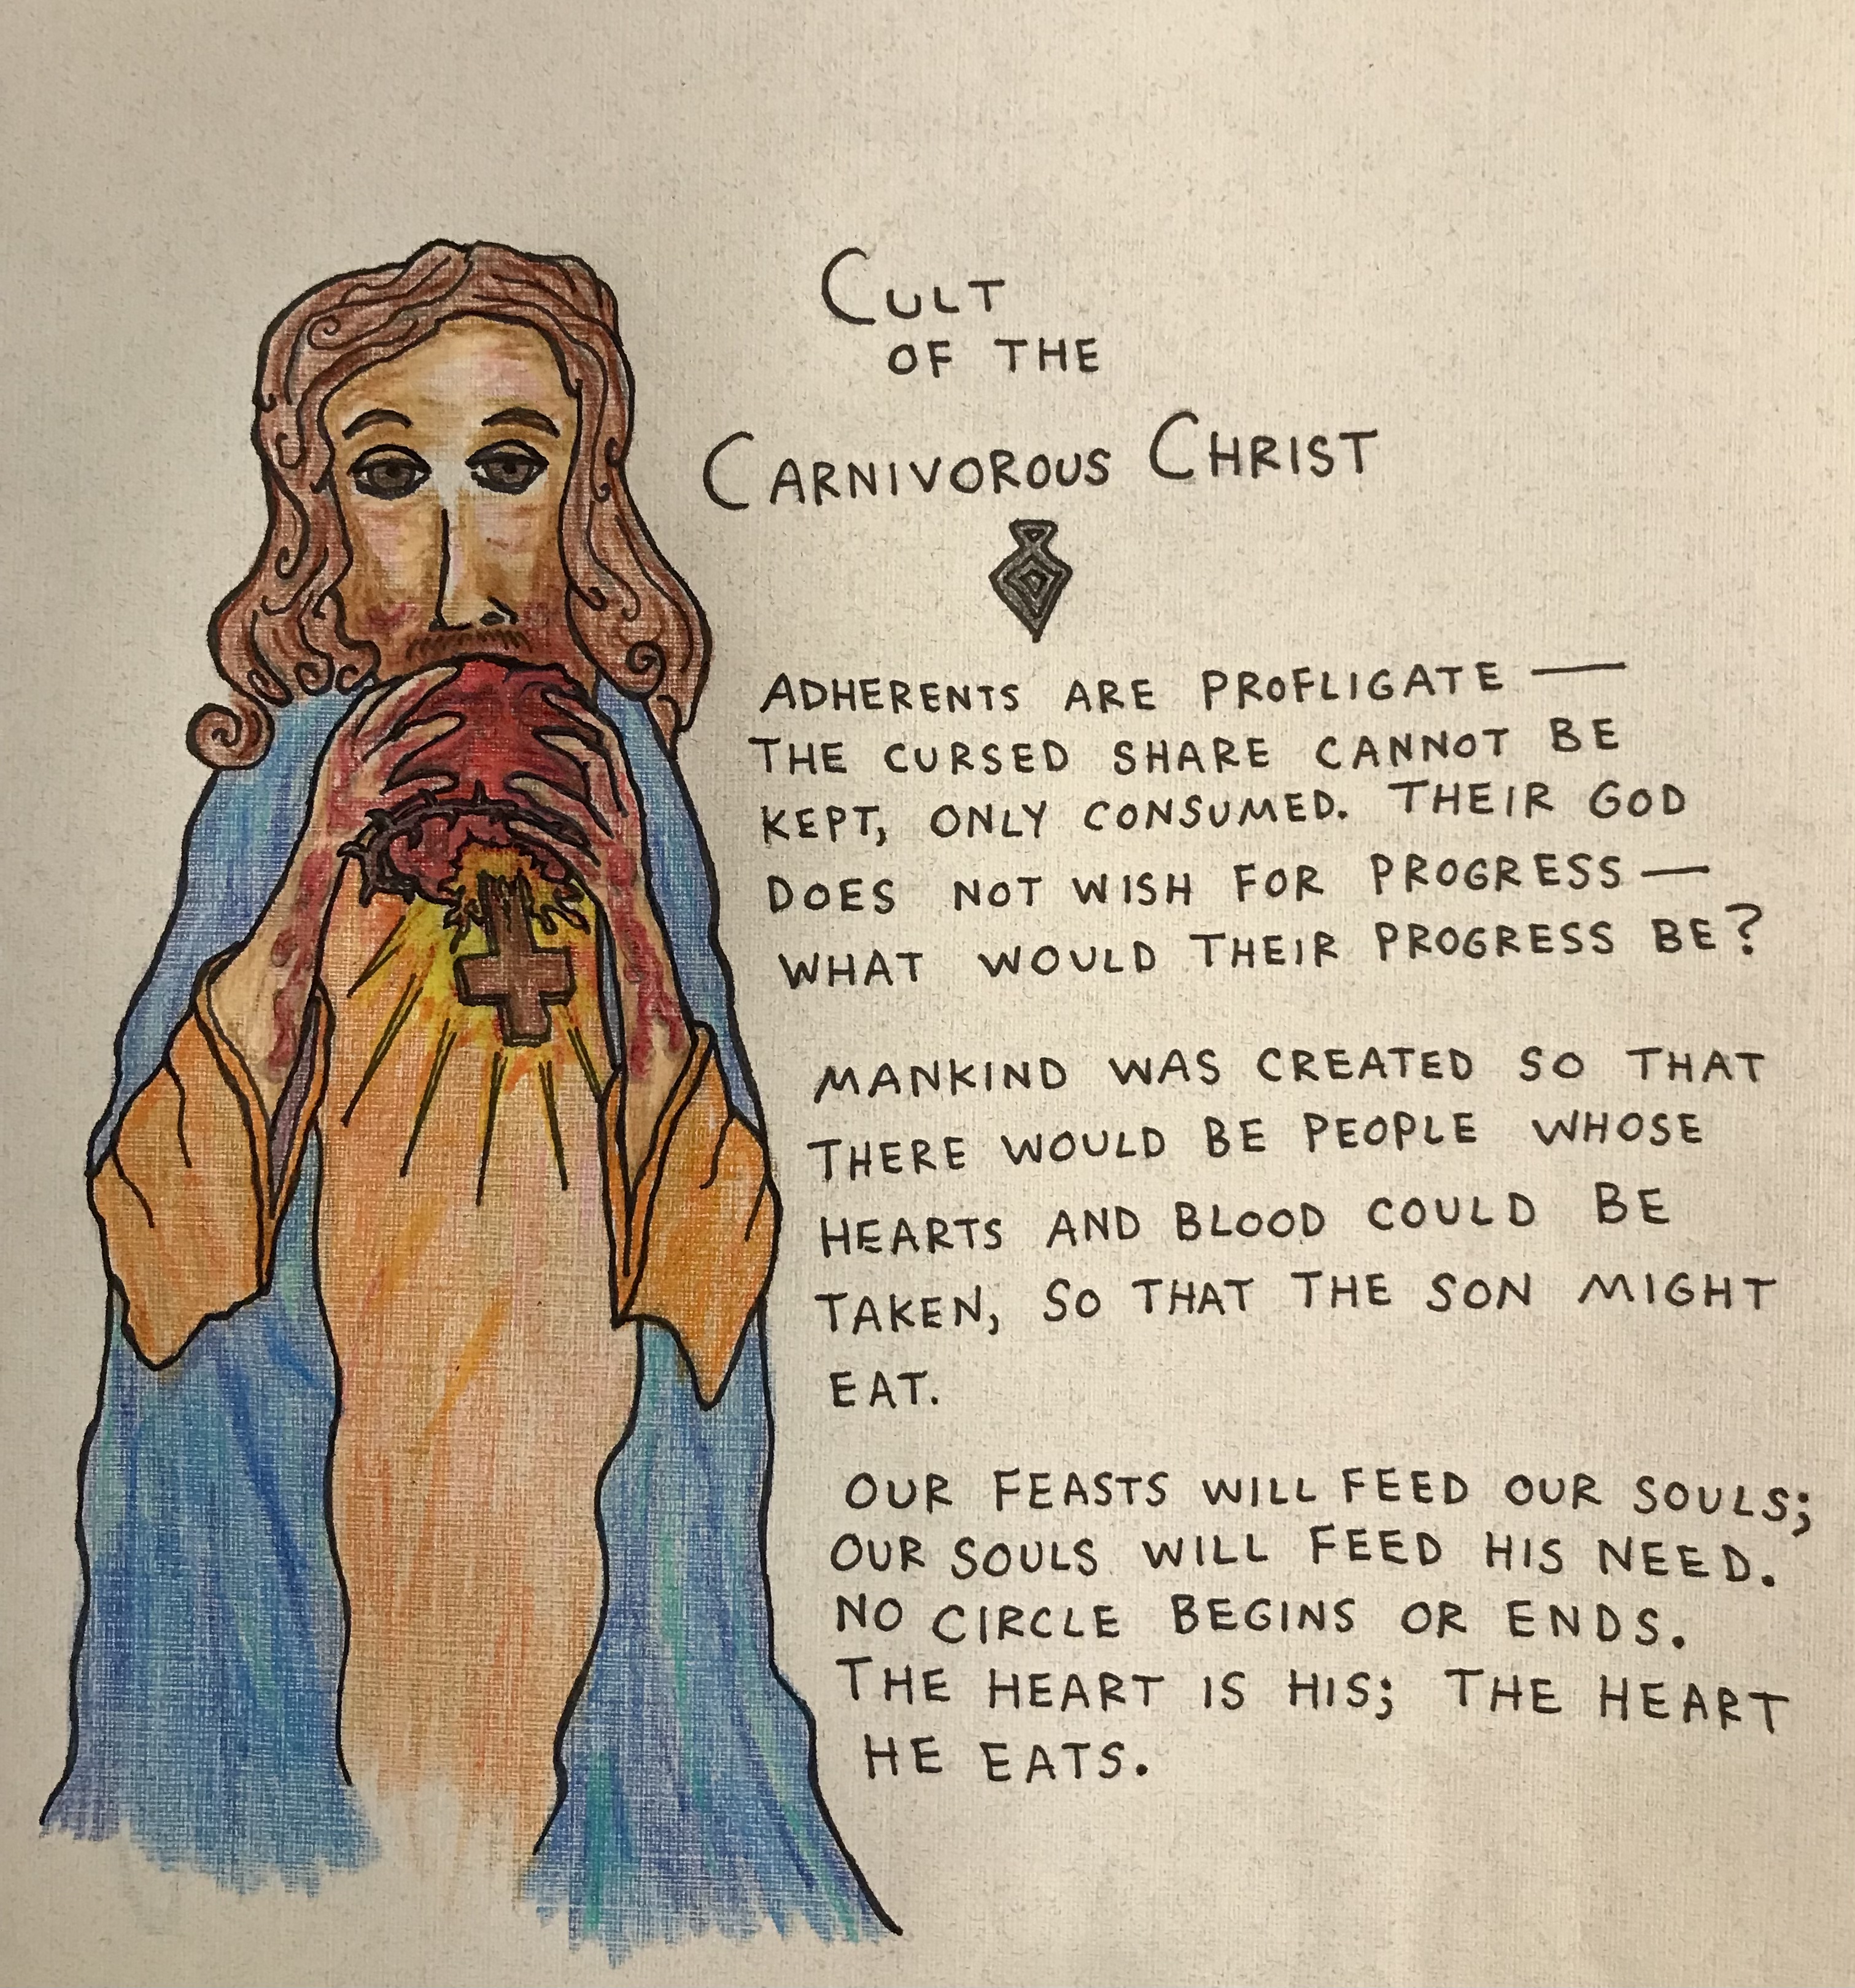 CULT
OF THE
CARNIVOROUS CHRIST
ADHERENTS ARE PROFLIGATE —
THE CURSED SHARE CANNOT BE
KEPT, ONLY CONSUMED. THEIR GOD
DOES NOT WISH FOR PROGRESS —
WHAT WOULD THEIR PROGRESS BE?
MANKIND WAS CREATED SO THAT
THERE WOULD BE PEOPLE WHOSE
HEARTS AND BLOOD COULD BE
TAKEN, SO THAT THE SON MIGHT
EAT.
OUR FEASTS WILL FEED OUR SOULS;
OUR SOULS WILL FEED HIS NEED.
NO CIRCLE BEGINS OR ENDS.
THE HEART IS HIS; THE HEART
HE EATS.